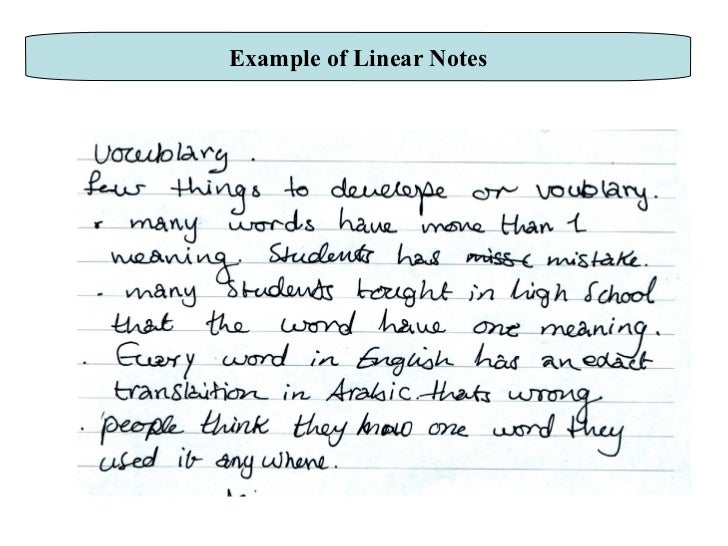 Example of Linear Notes
Vocublary.
few things to develepe or voublary.
• many words have more than 1
meaning. Students has miss mistake.
• many Students tought in high School
that the word have one meaning.
• Every word in English has an edact
translaition in Arabic. thats wrong
• people think they know one word they
used it any where.